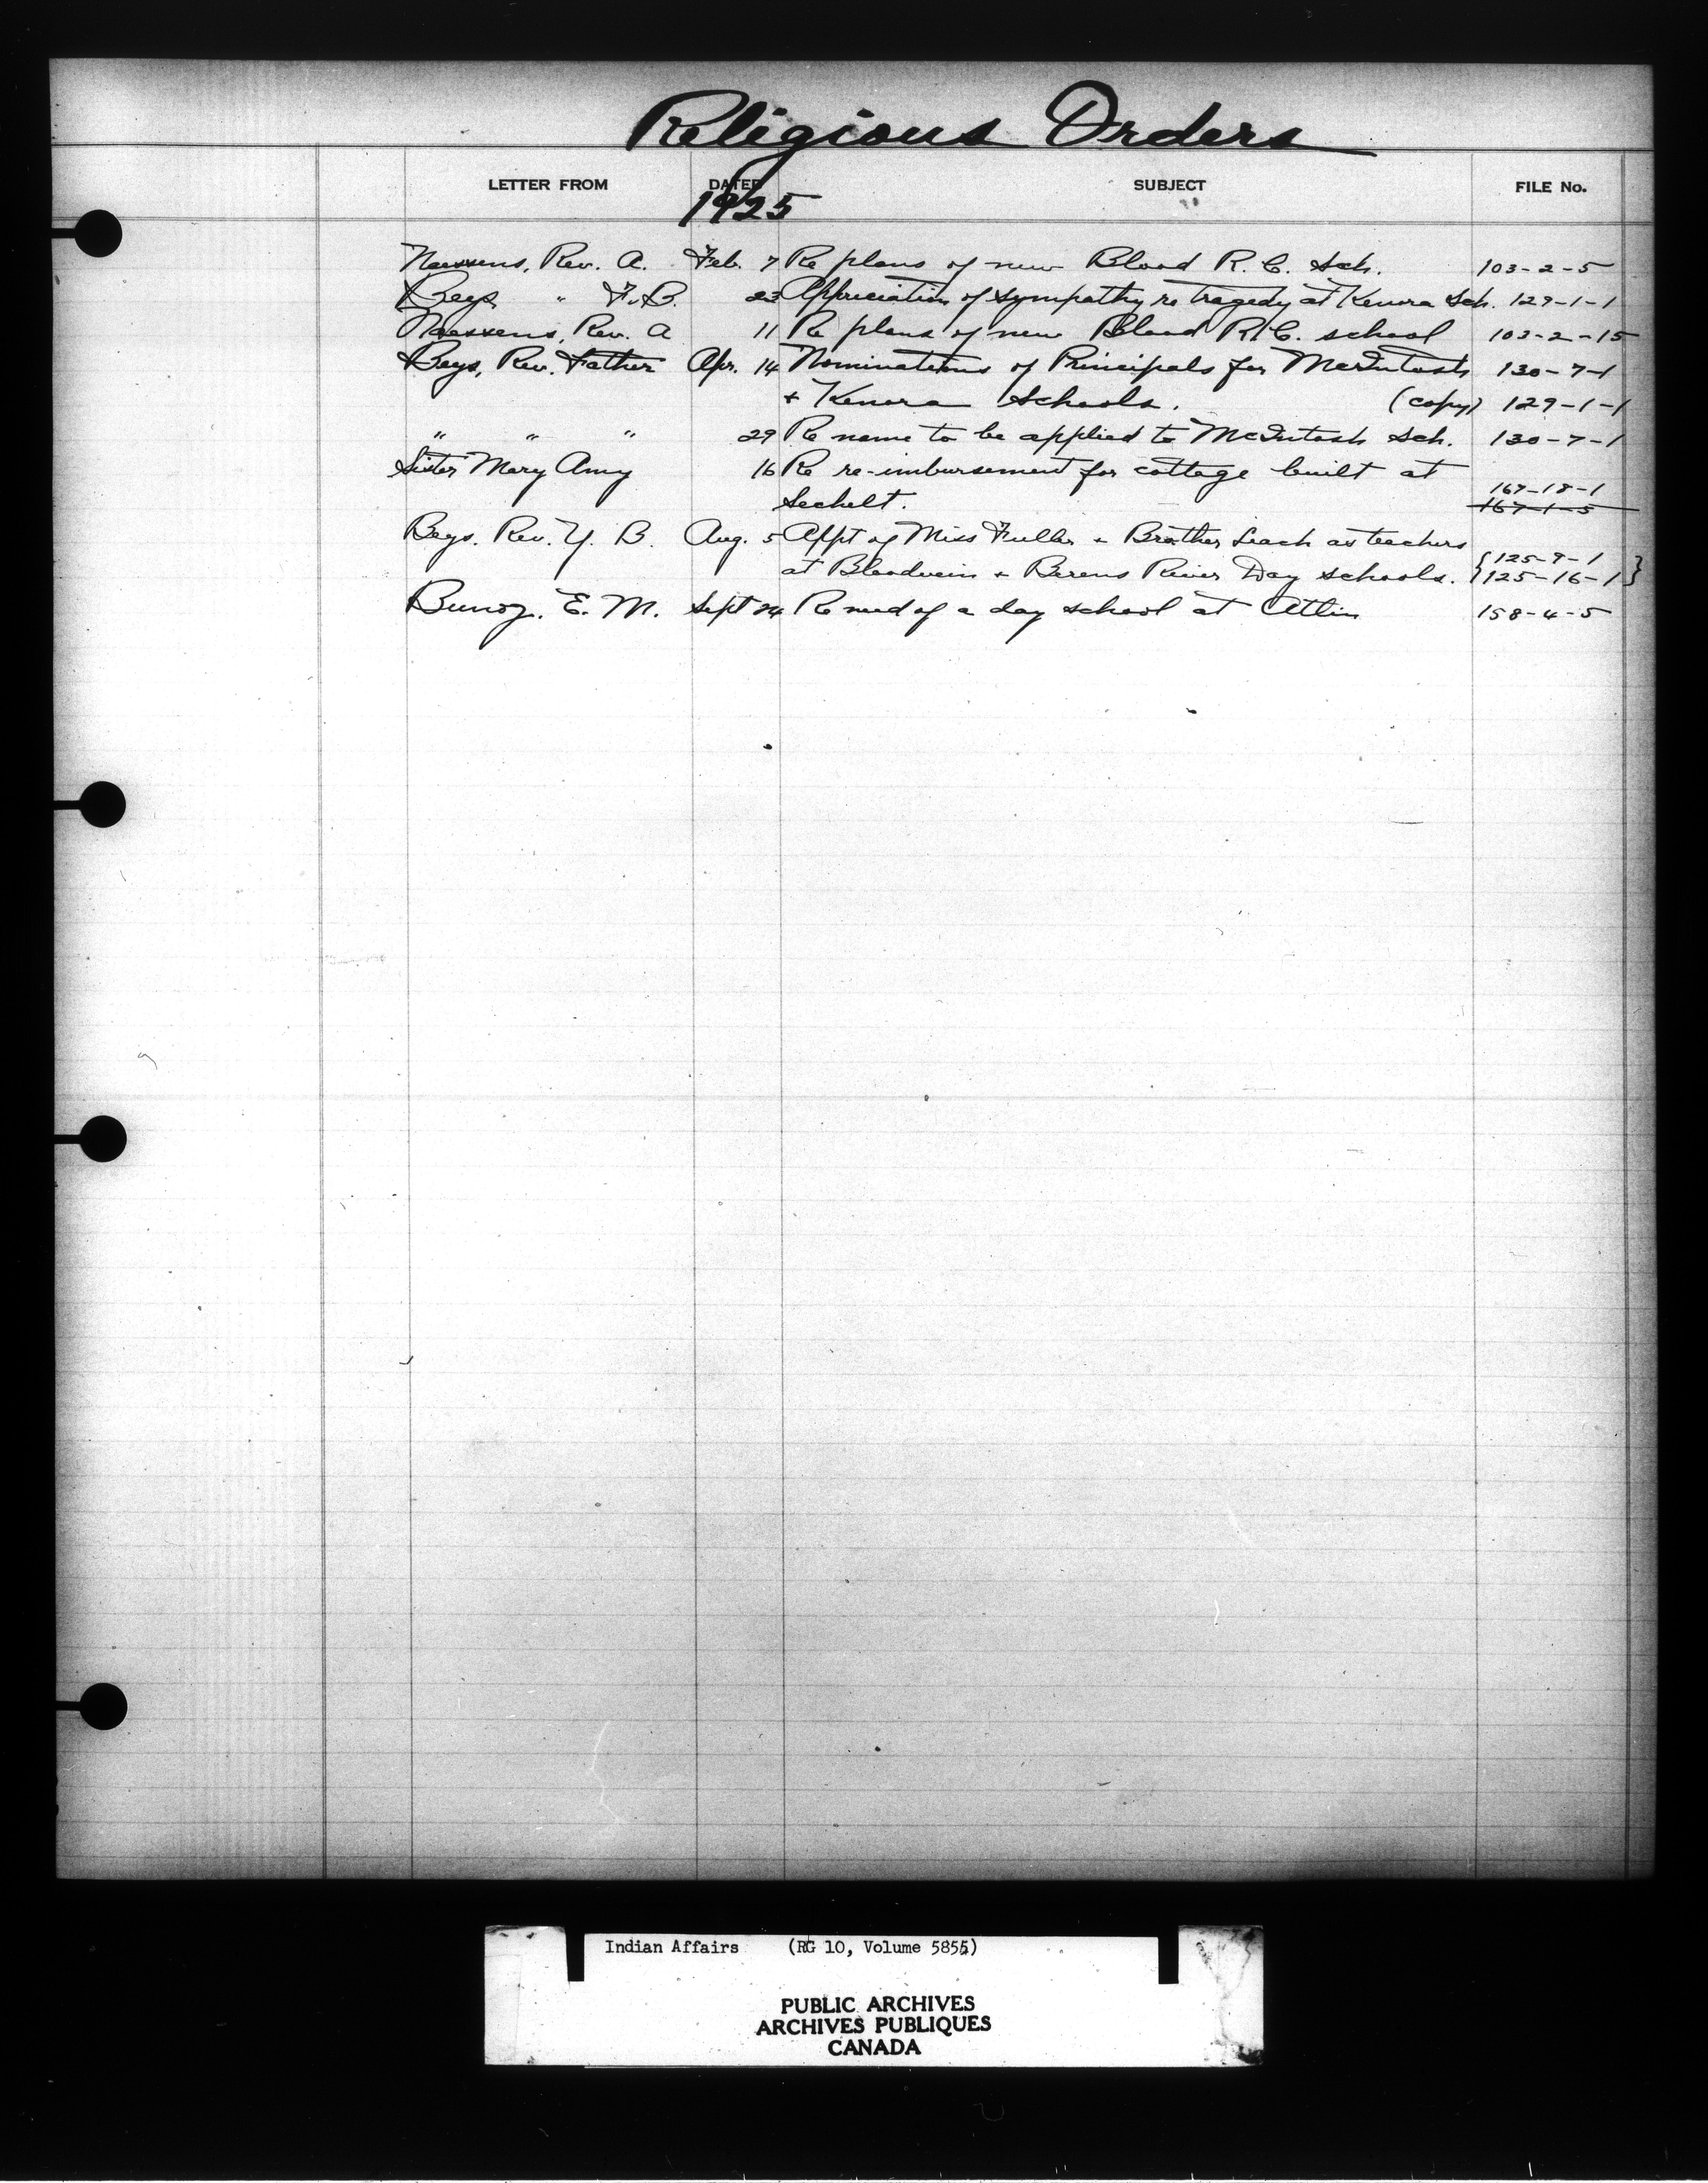 Religious Orders
LETTER FROM DATED SUBJECT FILE No.
1925
Naessens, Rev. A. Feb. 7 Re plans of new Blood R. C. Sch. 103-2-5
Beys, " F. B. 23 Appreciation of sympathy re tragedy at Kenora Sch. 129-1-1
Naessens, Rev. A 11 Re plans of new Blood R. C. school 103-2-15
Beys, Rev. Father Apr. 14 Nominations of Principals for McIntosh 130-7-1
+ Kenora Schools. (copy) 129-1-1
" " " 29 Re name to be applied to McIntosh Sch. 130-7-1
Sister Mary Amy 16 Re re-imbursement for cottage built at
167-18-1
Sechelt. 167-1-5
Beys. Rev. Y. B. Aug. 5 Appt of Miss Fuller + Brother Leach as teachers
{125-9-1
at Bloodvein + Berens River Day schools. {125-16-1}
Bunoz. E. M. Sept 24 Re need of a day school at Atlin 158-4-5
Indian Affairs (RG 10, Volume 5855)
PUBLIC ARCHIVES
ARCHIVES PUBLIQUES
CANADA